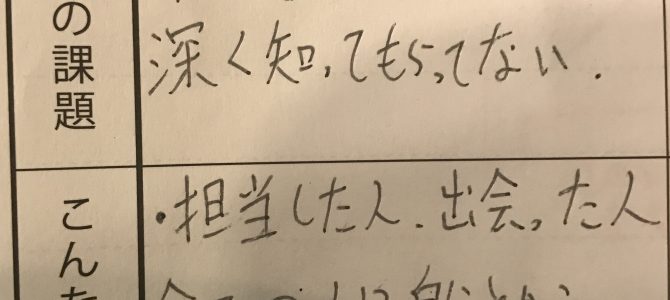 の課題
深く知ってもらってない.
こんな
・担当した人.出会った人